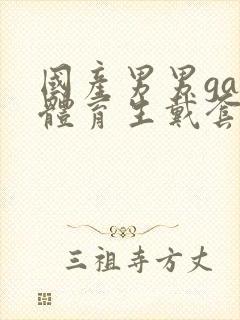 國產男男ga
體育生戴套
三祖寺方丈